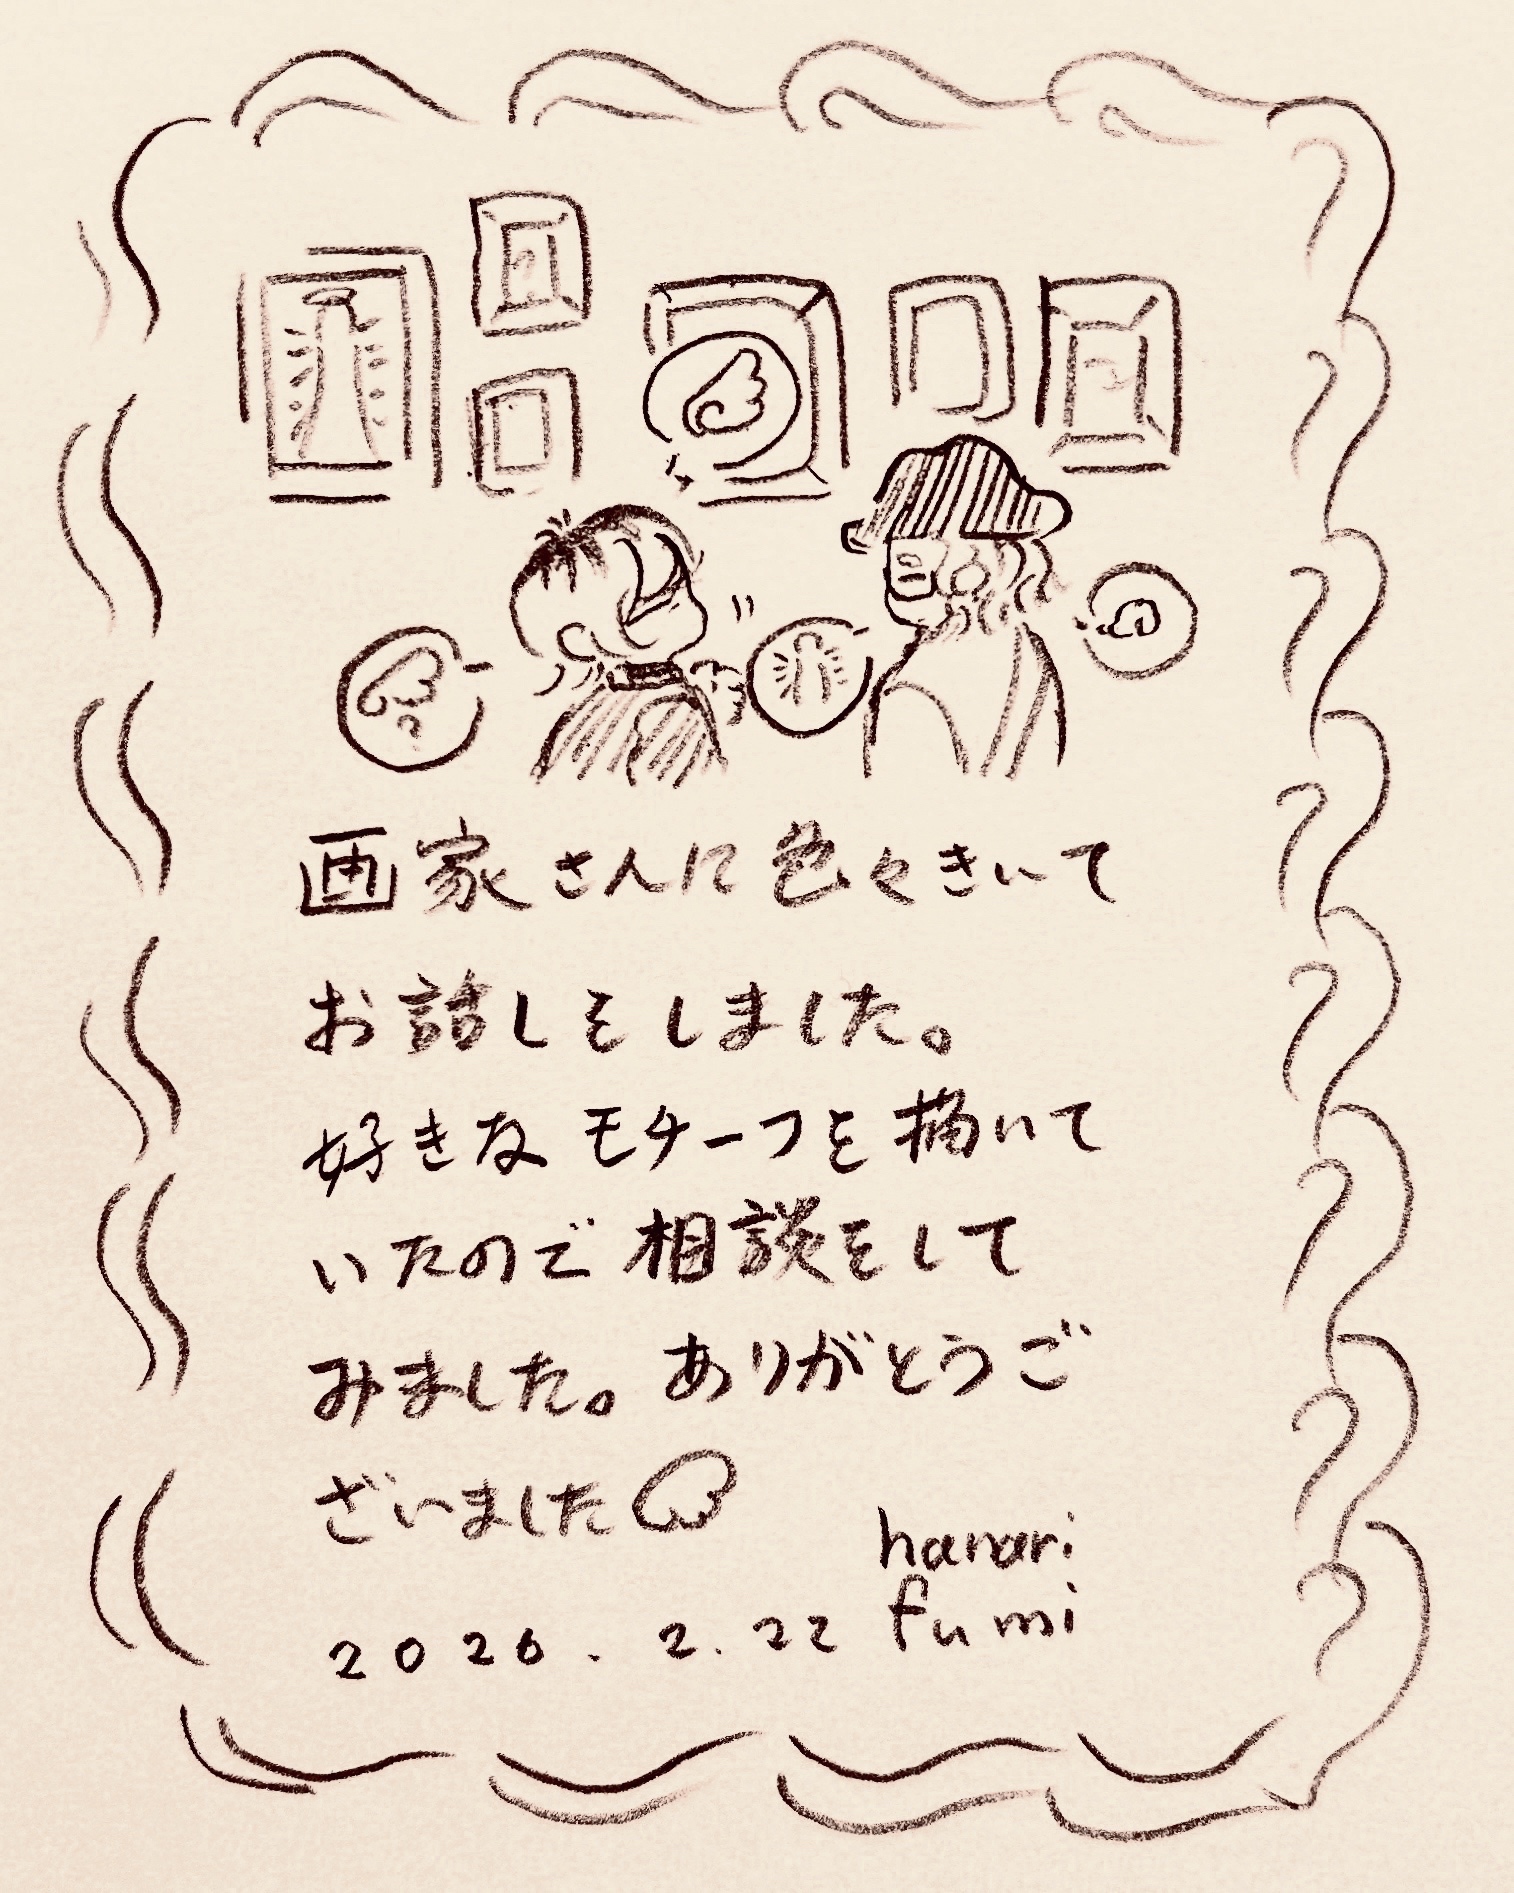 画家さんに色々きいて
お話しをしました。
好きなモチーフを描いて
いたので相談をして
みました。ありがとうご
ざいました
hanari
fumi
2026.2.22